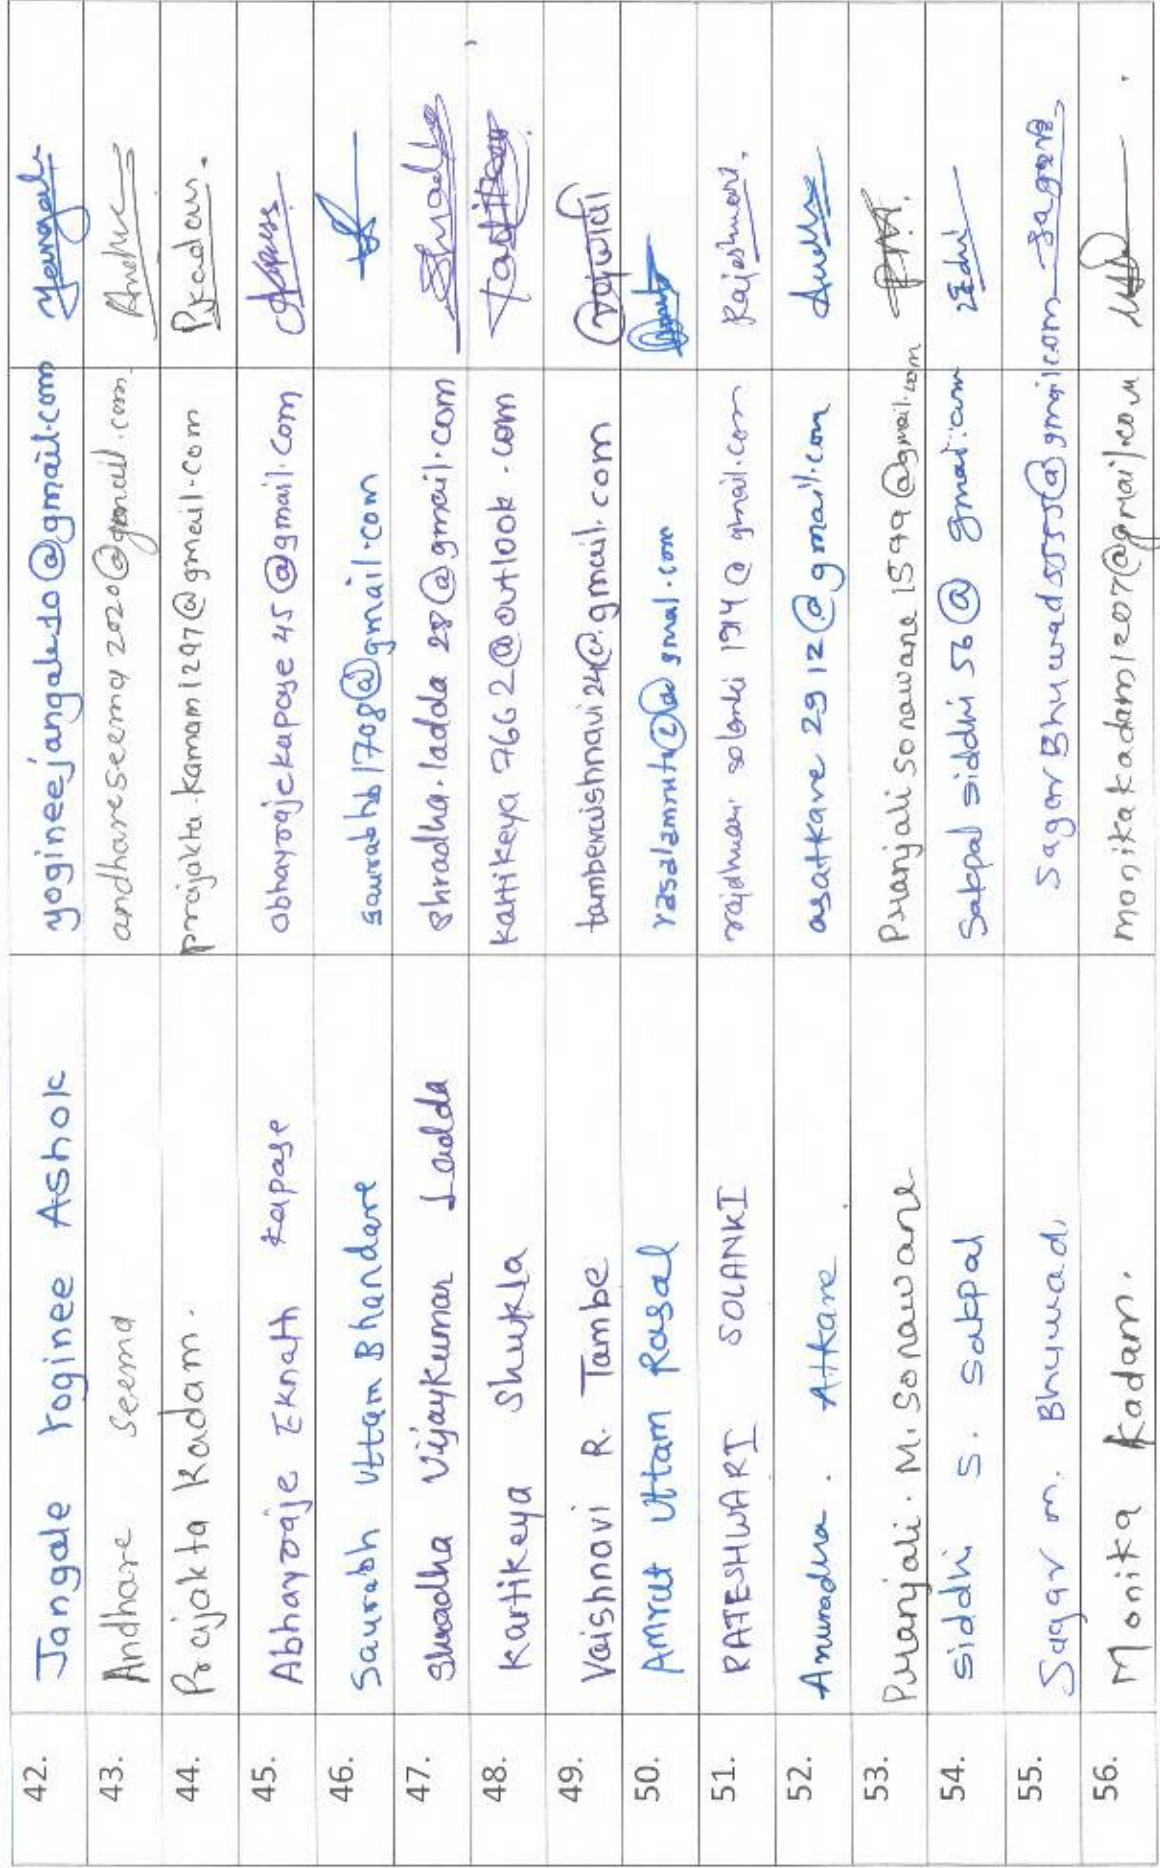 42. Jangale Yoginee Ashok yogineejangale10@gmail.com
43. Andhare Seema andhareseema2020@gmail.com
44. Prajakta Kadam. prajakta.kamam1297@gmail.com Pkadam.
45. Abhayraje Eknath Kapase abhayrajekapase45@gmail.com
46. Saurabh Uttam Bhandare saurabhb1708@gmail.com
47. Shradha Vijaykumar Ladda shradha.ladda28@gmail.com
48. Kartikeya Shukla kartikeya7662@outlook.com
49. Vaishnavi R. Tambe tambevaishnavi24@gmail.com
50. Amrut Uttam Rasal
51. RAJESHWARI SOLANKI Rajeshwari.
52. Anuradha. Atkare asatkare2912@gmail.com
53. Pranjali. M. Sonawane Pranjalisonawane1599@gmail.com
54. Siddhi S. Sakpal Sakpalsiddhi56@gmail.com
55. Sagar m. Bhuwad. SagarBhuwad5555@gmail.com
56. Monika Kadam. monikakadam1207@gmail.com